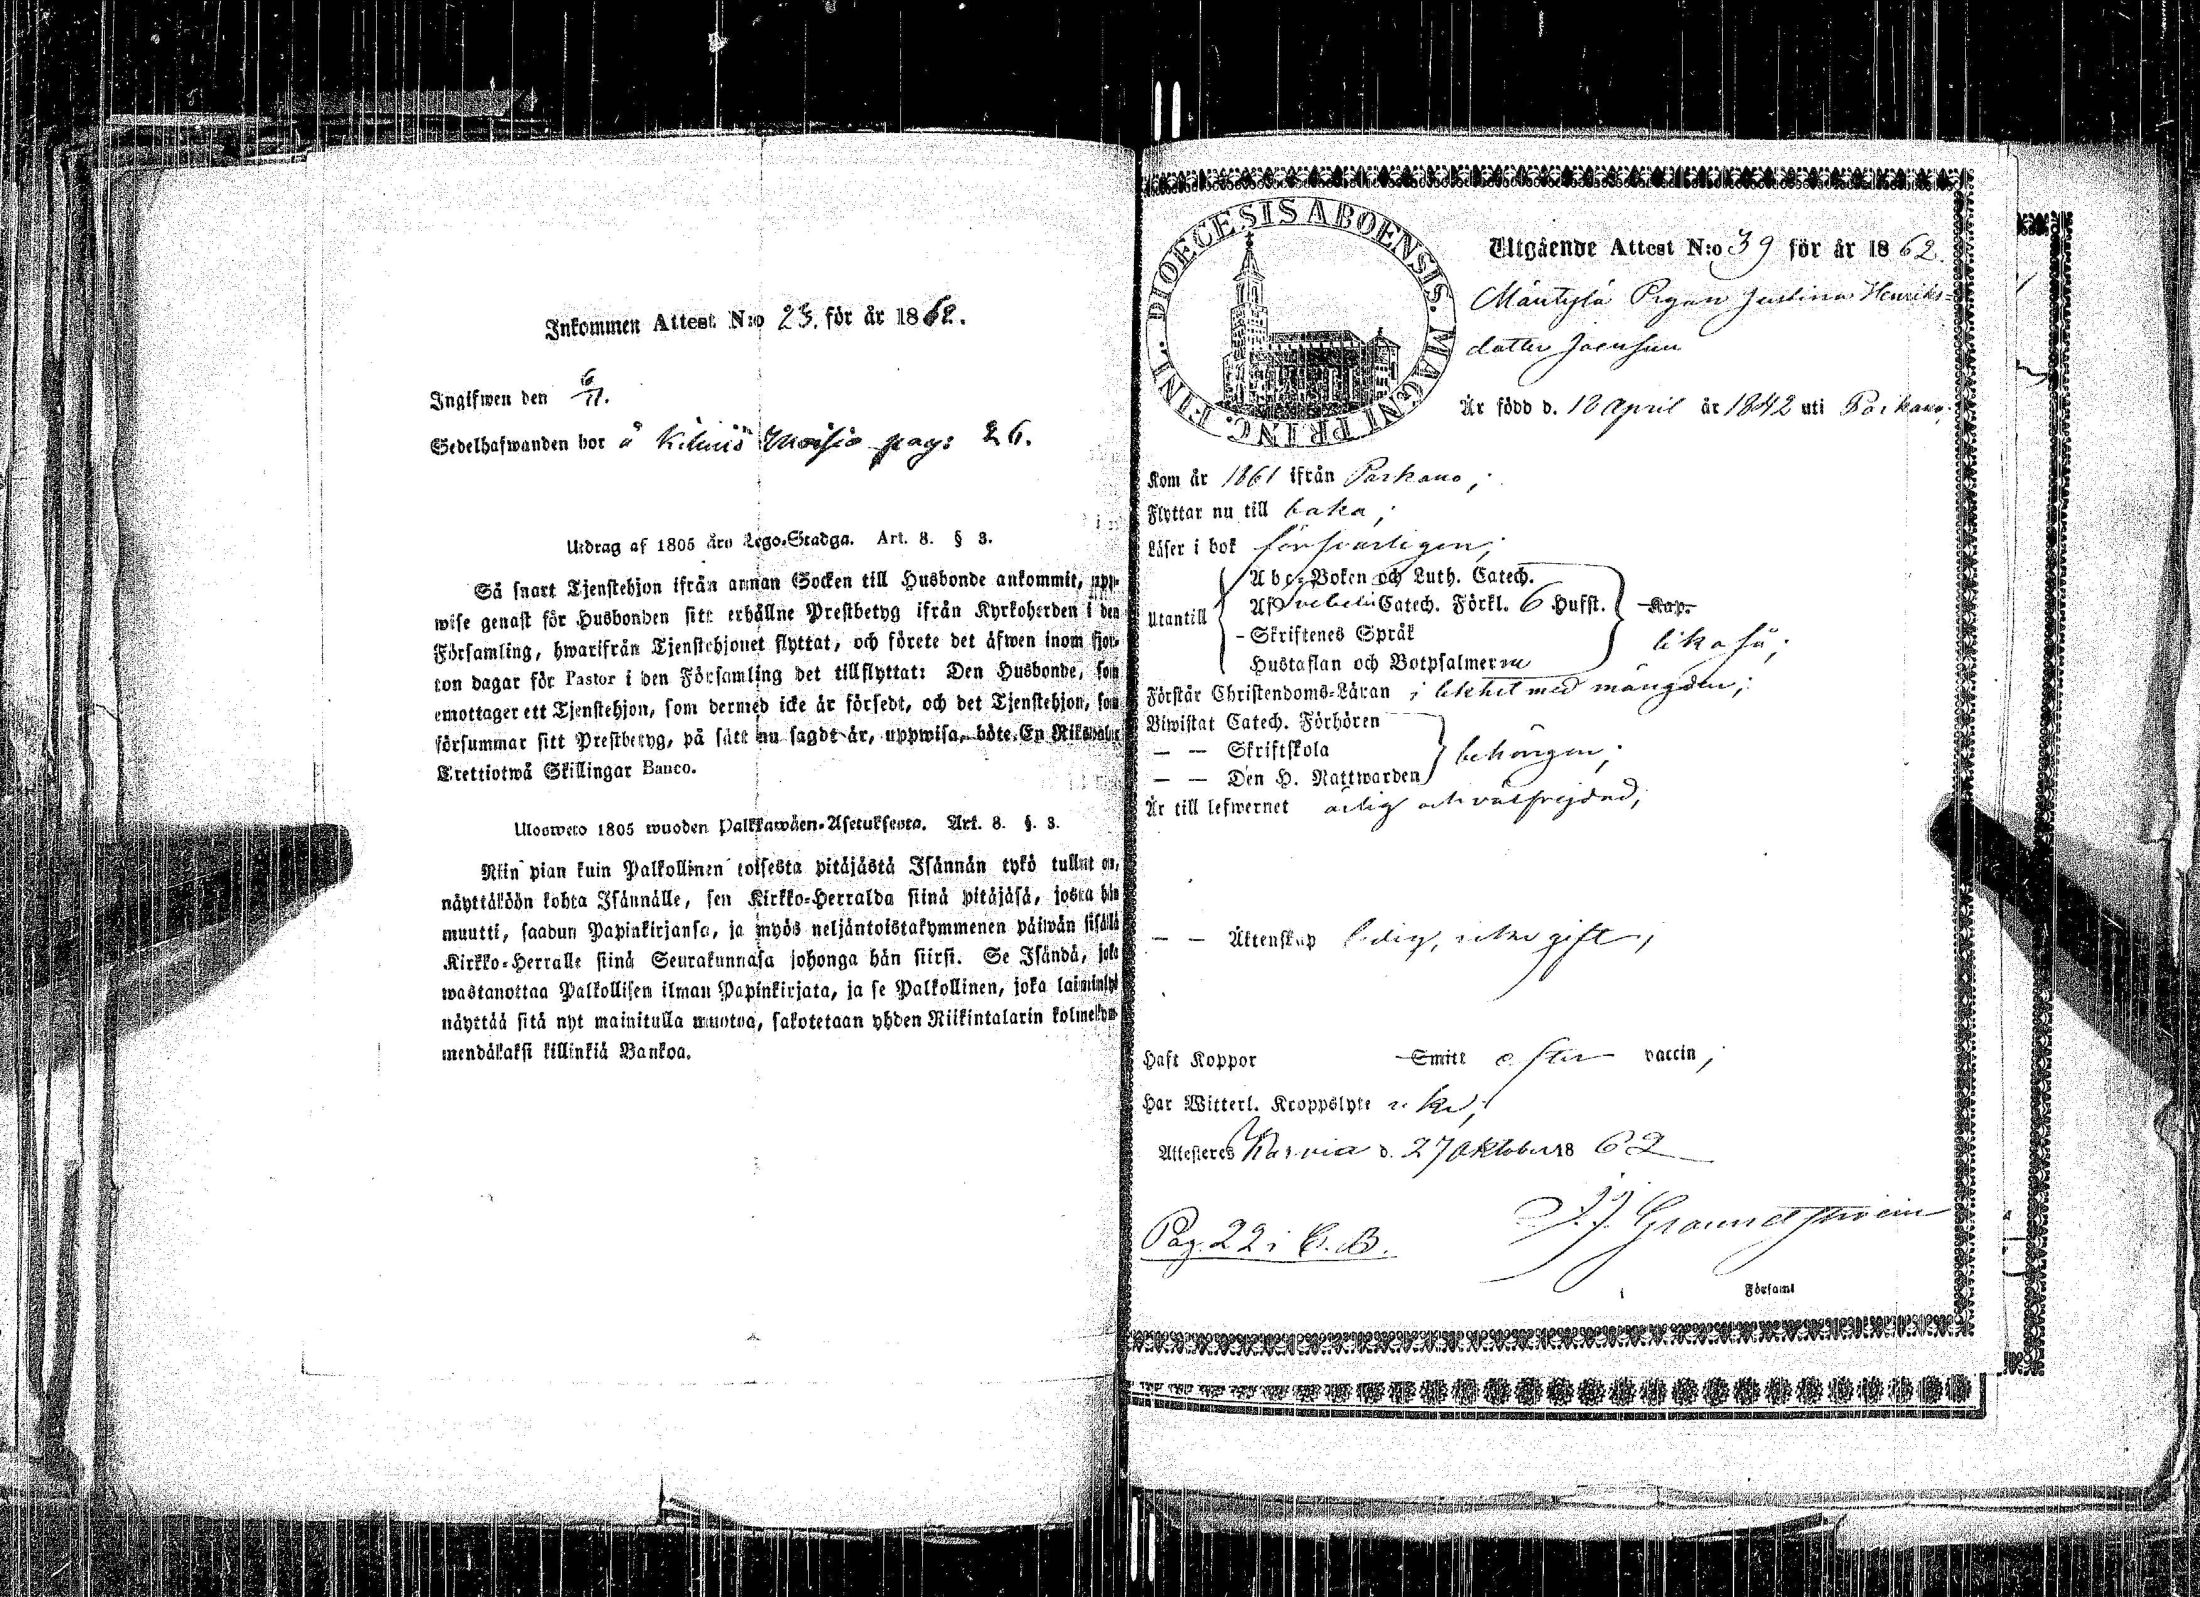 Inkommen Attest N:o 23. för år 1862.
Ingifwen den 6/11.
Sedelhafwanden bor å pag: 26.
Utdrag af 1805 års Lego-Stadga. Art. 8. § 3.
Så snart Tjenstehjon ifrån annan Socken till Husbonde ankommit, upp-
wise genast för Husbonden sitt erhållne Prestbetyg ifrån Kyrkoherden i den
Församling, hwarifrån Tjenstehjonet flyttat, och förete det äfwen inom fjor-
ton dagar för Pastor i den Församling det tillflyttat: Den Husbonde, som
emottager ett Tjenstehjon, som dermed icke är försedt, och det Tjenstehjon, som
försummar sitt Prestbetyg, på sätt nu sagdt är, uppwisa, böte En Riksdaler
Trettiotwå Skillingar Banco.
Ulosweto 1805 wuoden Palkkawäen-Asetuksesta. Art. 8. §. 3.
Niin pian kuin Palkollinen toisesta pitäjästä Isännän tykö tullut on,
näyttäköön kohta Isännälle, sen Kirkko-Herralda siinä pitäjäsä, josta hän
muutti, saadun Papinkirjansa, ja myös neljäntoistakymmenen päiwän sisällä
Kirkko-Herralle siinä Seurakunnasa johonga hän siirsi. Se Isändä, joka
wastanottaa Palkollisen ilman Papinkirjata, ja se Palkollinen, joka laiminlyö
näyttää sitä nyt mainitulla muotoa, sakotetaan yhden Riikintalarin kolmekym-
mendäkaksi killinkiä Bankoa.
DIOECESIS ABOENSIS. MAGNI PRINC. FINL.
Utgående Attest N:o 39 för år 1862.
Mäntylä Pigan Justina Henriks-
dotter
Är född d. 18 April år 1842 uti Parkano,
Kom år 1861 ifrån Parkano;
Flyttar nu till baka;
Läser i bok försvarligen;
Abc-Boken och Luth. Catech.
Utantill Af Svebelii Catech. Förkl. 6 Hufst. Kap.
- Skriftenes Språk likaså;
Hustaflan och Botpsalmerna
Förstår Christendoms-Läran i likhet med mängden;
Biwistat Catech. Förhören
— — Skriftskola behörigen;
— — Den H. Nattwarden
Är till lefwernet ärlig och välfrejdad;
— — Äktenskap ledig, icke gift;
Haft Koppor Smitt efter vaccin;
Har Witterl. Kroppslyte icke;
Attesteras Karvia d. 27 Oktober 1862
Pag. 22 i C. B. J. J. Grounstroem
i Församl